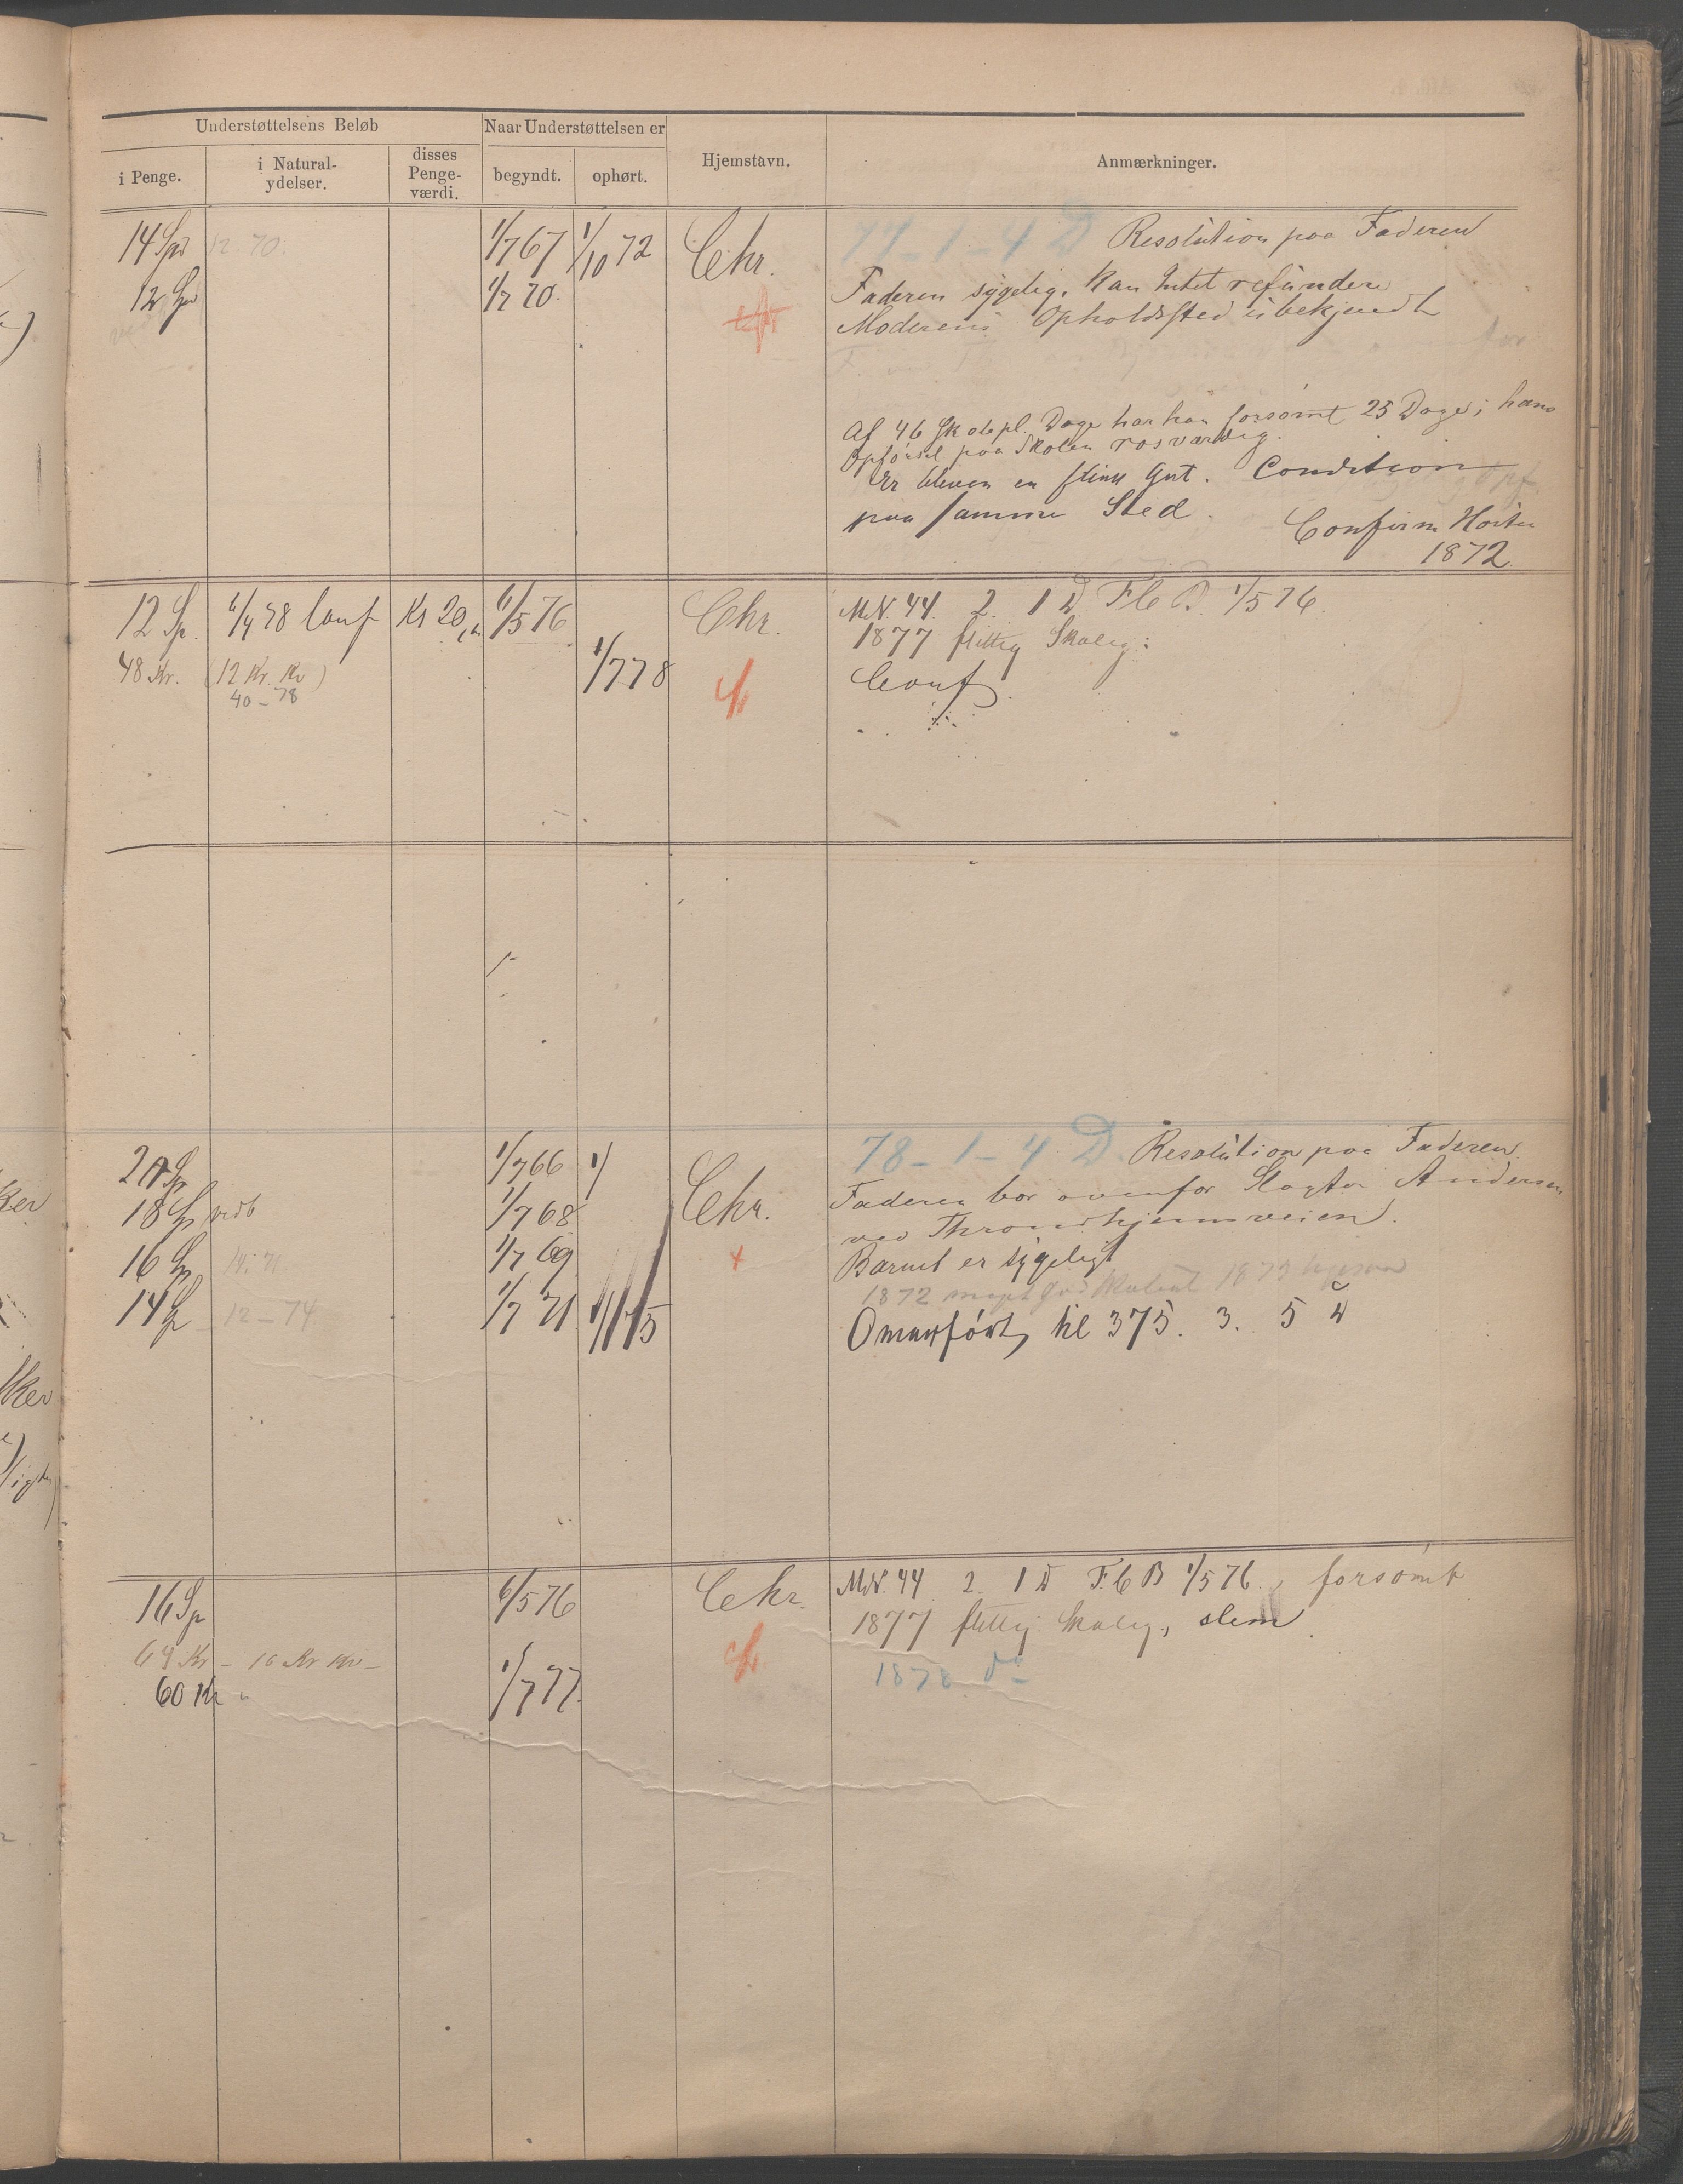 Understøttelsens Beløb
Naar Understøttelsen er
Hjemstavn.
Anmærkninger.
i Penge.
i Natural-
ydelser.
disses
Penge-
værdi.
begyndt.
ophørt.
14 Spd 12 70. 1/7 67 1/10 72 Chr. 77-1-4 D Resolution paa Faderen
12 Spd 1/7 70. Faderen sygelig, kan Intet refundere
Moderens Opholdssted ubekjendt
Af 46 Skolepl. Dage har han forsømt 25 Dage; hans
Opførsel paa Skolen rosværdig.
Er bleven en flink Gut. Condition
paa samme Sted.
Confirm Horten
1872
12 Sp. 4/4 78 Conf Kr 20 6/5 76 Chr. MN. 44. 2. 1 D F C B. 1/5 76.
1877 flittig Skoleg:
48 Kr. (12 Kr. Kv) 1/7 78 Conf.
40-78
20 Sp 1/7 66 1/ Chr. 78-1-4 D Resolution paa Faderen.
18 Sp 1/7 68 Faderen bor ovenfor Slagter Andersen
ved Throndhjemsveien.
16 Sp 14. 71 1/7 69 Barnet er sygeligt
1872 meget god 1873
14 Sp 12-74 1/7 71 1/1 75 Omanført, til 375. 3. 5
16 Sp 6/5 76 Chr. MN. 44 2. 1 D F. C B 1/5 76., forsømt
1877 flittig Skoleg., slem
64 Kr - 16 Kr Kv-
60 Kr 1/7 77. 1878 do